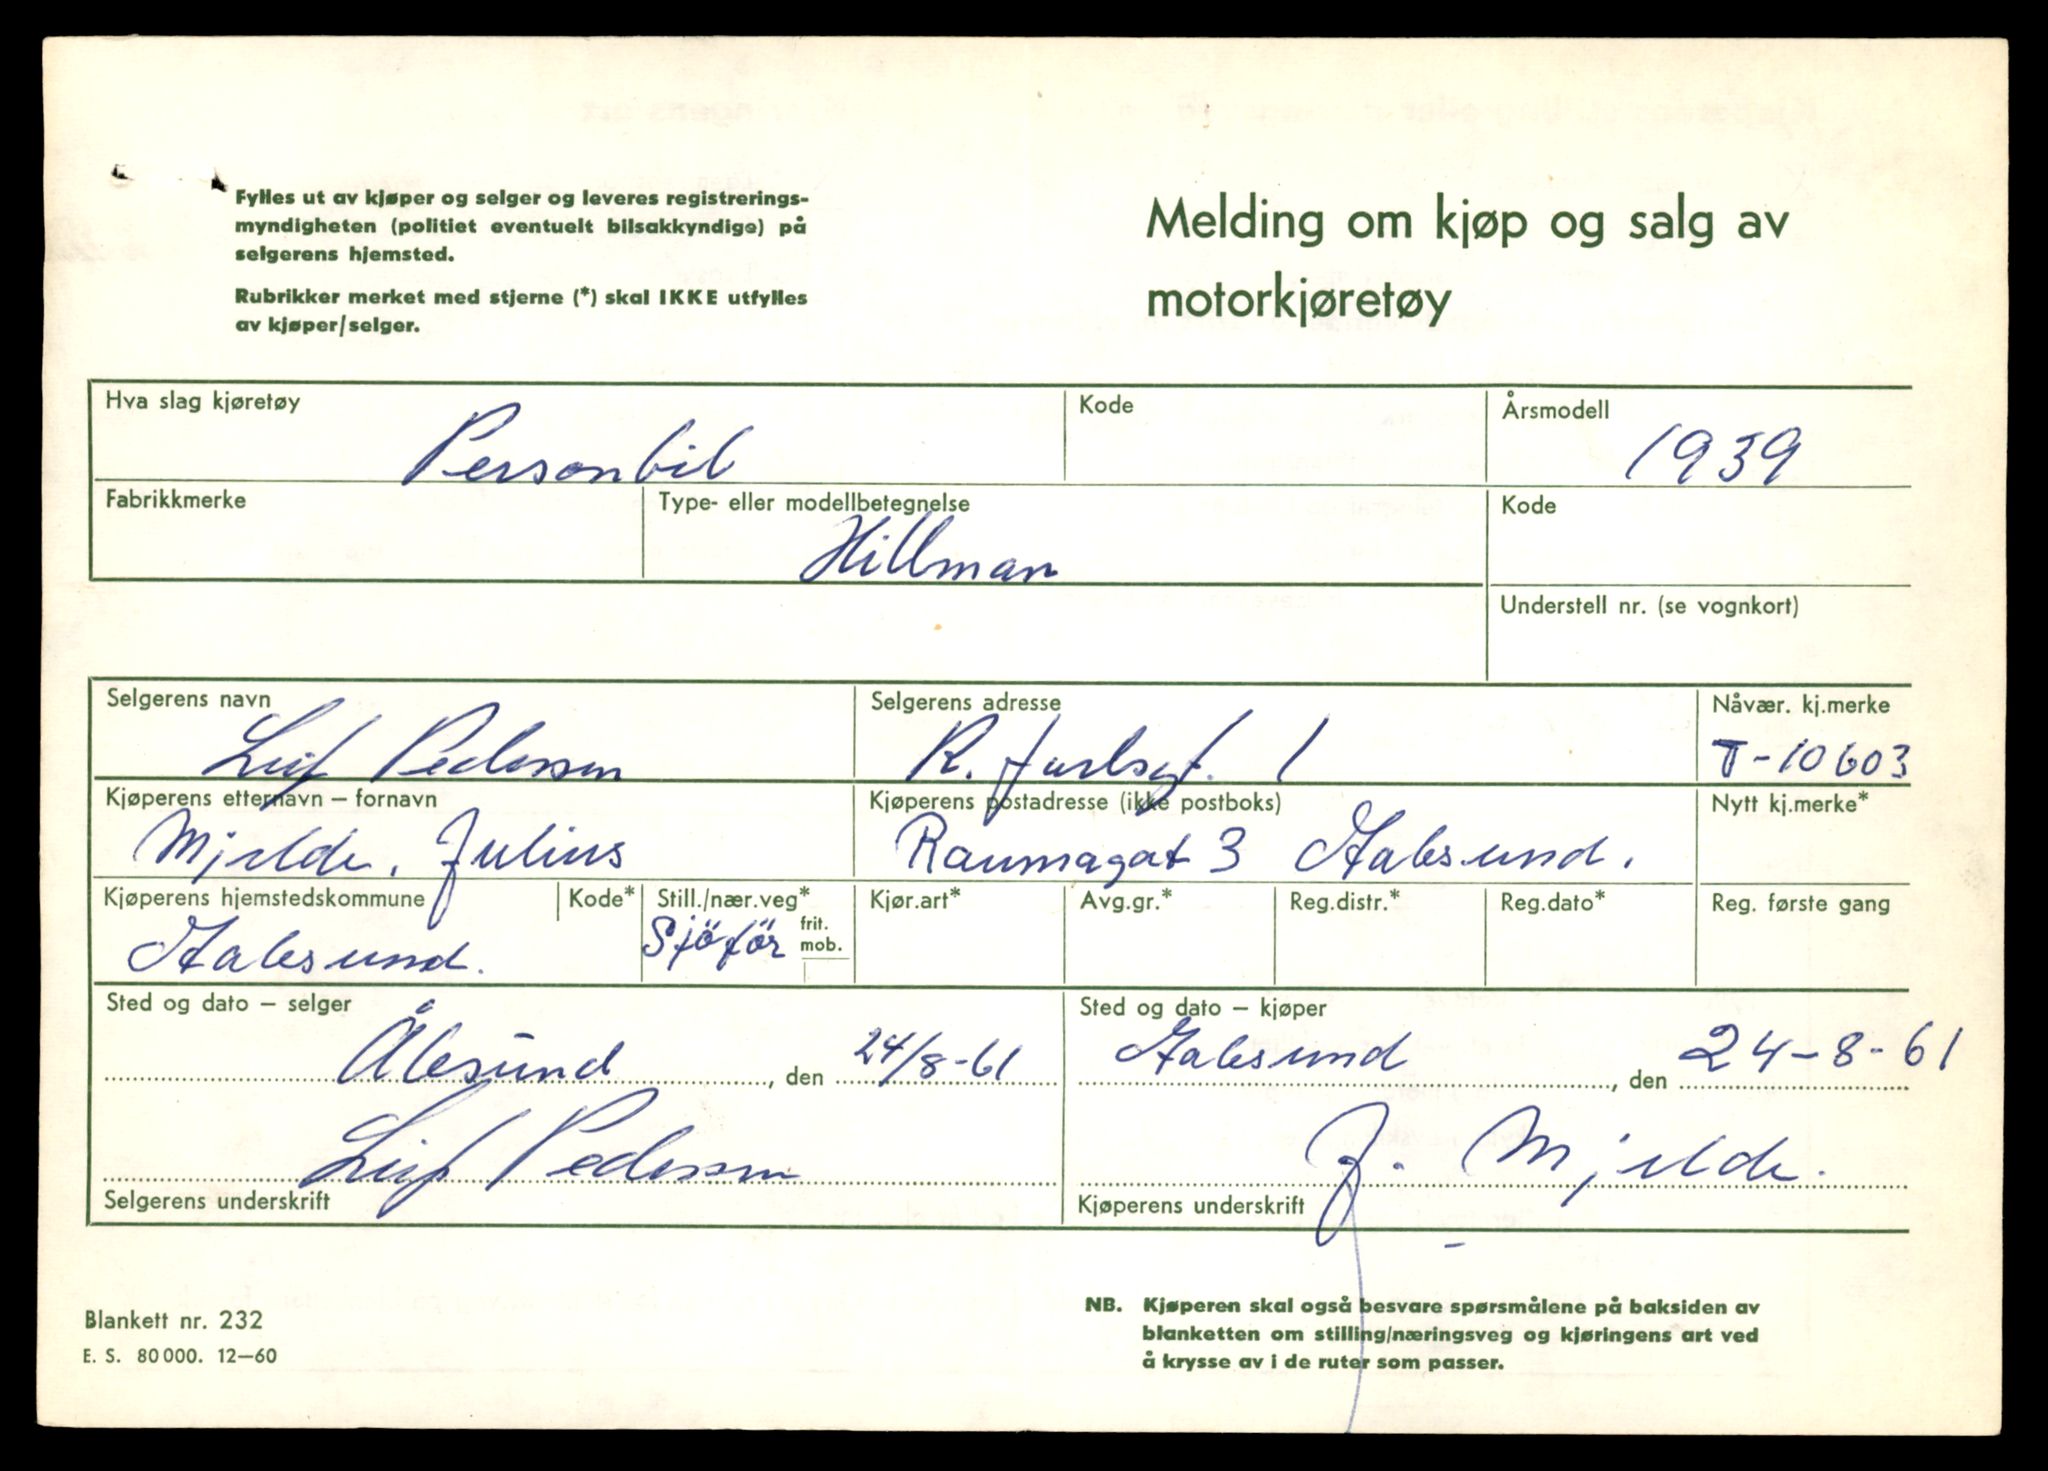 Fylles ut av kjøper og selger og leveres registrerings-
myndigheten (politiet eventuelt bilsakkyndige) på
selgerens hjemsted.
Rubrikker merket med stjerne (*) skal IKKE utfylles
av kjøper/selger.
Melding om kjøp og salg av
motorkjøretøy
Hva slag kjøretøy
Personbil
Kode
Årsmodell
1939
Fabrikkmerke
Type- eller modellbetegnelse
Hillman
Kode
Understell nr. (se vognkort)
Selgerens navn
Leif Pedersen
Selgerens adresse
R. Jarlsgt. 1
Nåvær. kj.merke
T-10603
Kjøperens etternavn – fornavn
Mjelde, Julius
Kjøperens postadresse (ikke postboks)
Raumagat 3 Aalesund.
Nytt kj.merke*
Kjøperens hjemstedskommune
Aalesund.
Kode*
Still./nær.veg*
Sjöför
frit.
mob.
Kjør.art*
Avg.gr.*
Reg.distr.*
Reg.dato*
Reg. første gang
Sted og dato – selger
Ålesund, den 24/8-61
Sted og dato – kjøper
Aalesund, den 24-8-61
Leif Pedersen
Selgerens underskrift
J. Mjelde.
Kjøperens underskrift
Blankett nr. 232
E. S. 80 000. 12–60
NB. Kjøperen skal også besvare spørsmålene på baksiden av
blanketten om stilling/næringsveg og kjøringens art ved
å krysse av i de ruter som passer.